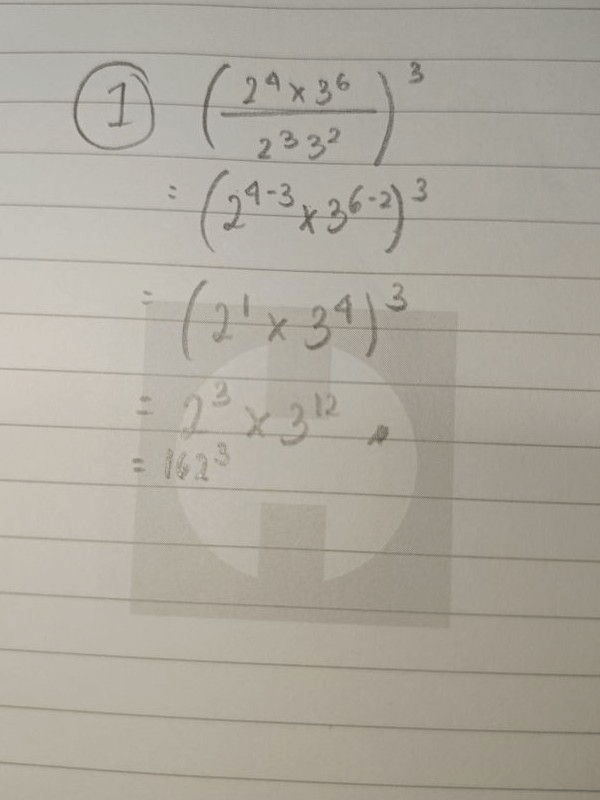 ① (2⁴ × 3⁶ / 2³ 3²)³
= (2⁴⁻³ × 3⁶⁻²)³
= (2¹ × 3⁴)³
= 2³ × 3¹²
= 162³